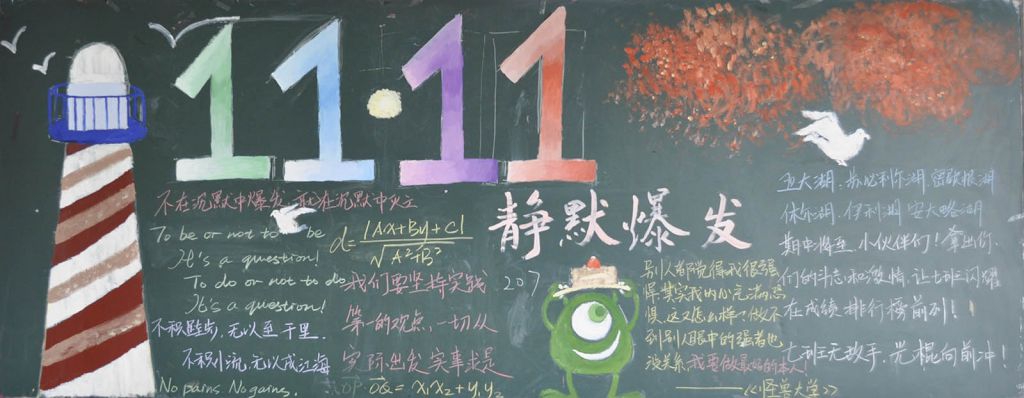 11·11
不在沉默中爆发,就在沉默中灭亡
To be or not to be
It's a question!
To do or not to do
It's a question!
不积跬步,无以至千里.
不积小流,无以成江海
No pains. No gains.
d = |Ax+By+C| / √A²+B²
我们要坚持实践
第一的观点,一切从
实际出发 实事求是
OP·OQ = x₁x₂+y₁y₂
静默爆发
207
别人都觉得我很强
悍其实我的内心充满恐
惧.这又怎么样?做不
到别人眼中的强者也
没关系,我要做最好的本人!
——《怪兽大学》
五大湖.苏必利尔湖 密歇根湖
休伦湖.伊利湖 安大略湖
期中将至 小伙伴们!拿出你
们的斗志和激情,让七班闪耀
在成绩排行榜前列!
七班无敌手,光棍向前冲!